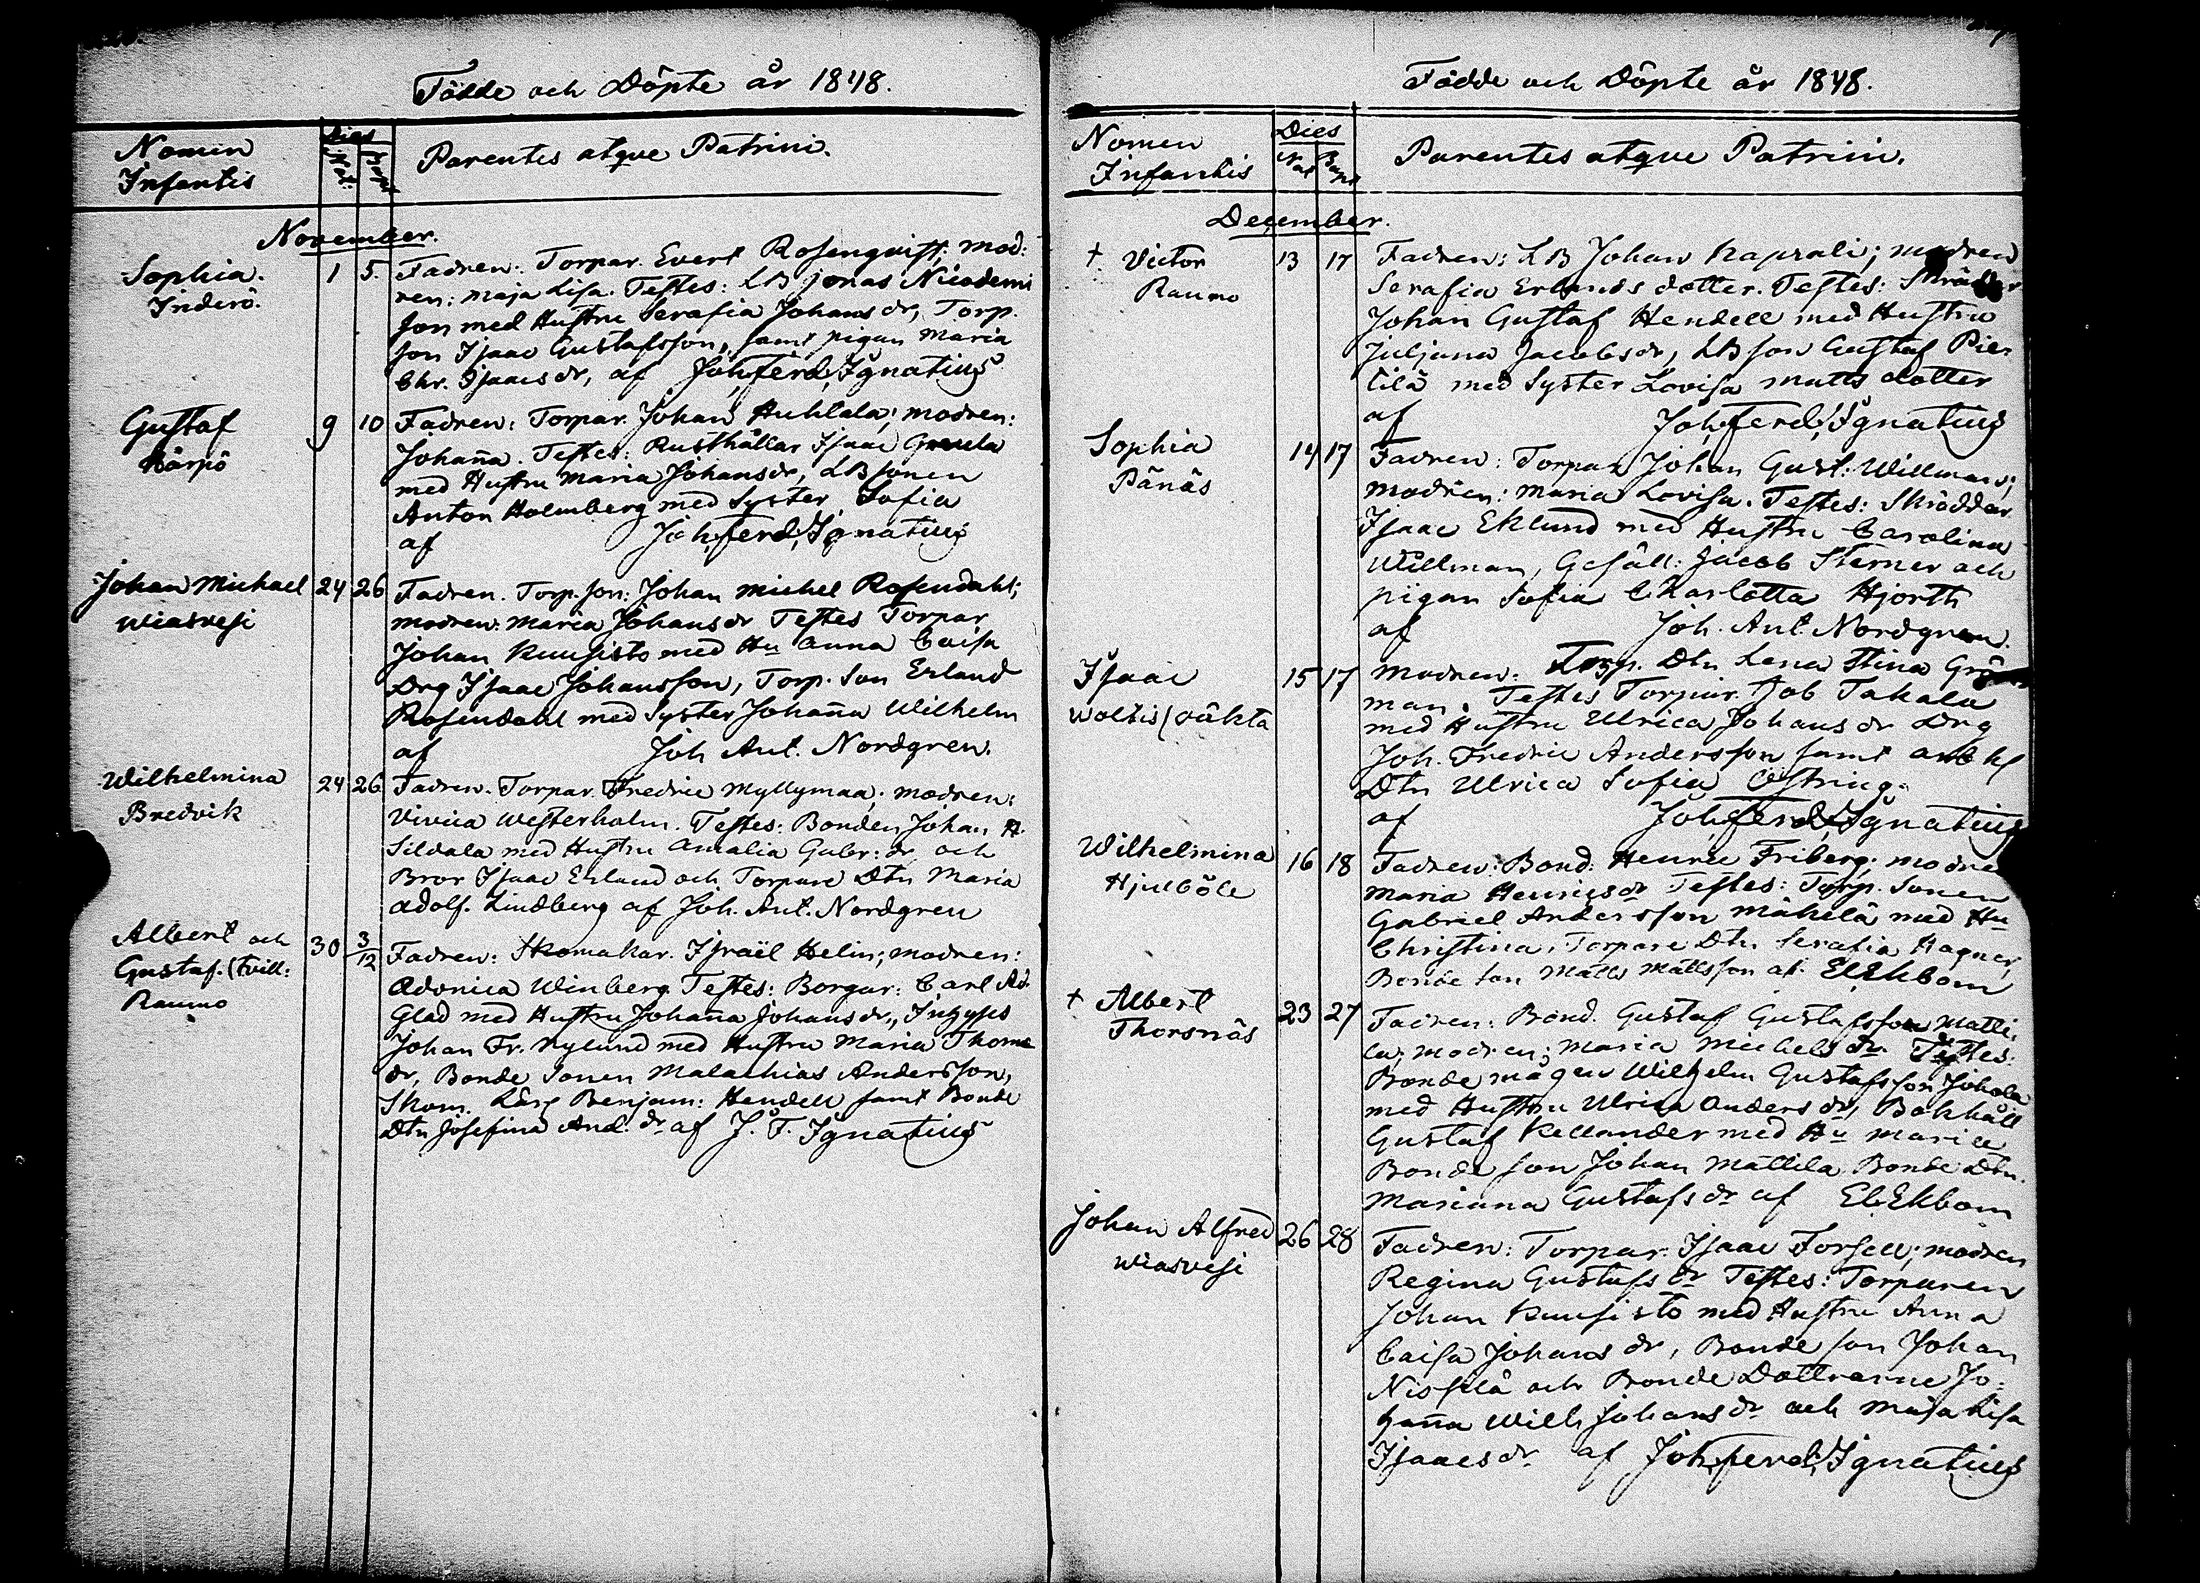 Födde och Döpte år 1848.
Nomen
Infantis
Dies
Nat:
Bapt
Parentes atque Patrini.
November.
Sophia.
Inderö.
1 5. Fadren: Torpar. Evert Rosenqvist; mod:
ren: Maja Lisa. Testes: LB Jonas Nicodemi
son med Hustru Serafia Johans dr, Torp.
son Isaac Gustafsson, samt pigan Maria
Chr. Isaacs dr, af Joh. Ferd. Ignatius
Gustaf
Kärpö
9 10 Fadren: Torpar. Johan Huhtala; modren:
Johanna. Testes: Rusthållar Isaac
med Hustru Maria Johans dr, LB sonen
Anton Holmberg med Syster Sofia
af Joh. Ferd. Ignatius
Johan Michael
Wiasvesi
24 26 Fadren. Torp. son: Johan Michel Rosendahl;
modren: Maria Johans dr Testes Torpar
Johan Kuusisto med Hu Anna Caisa
Drg Isaac Johansson, Torp. Son Erland
Rosendahl med Syster Johanna Wilhelm
af Joh Ant. Nordgren.
Wilhelmina
Bredvik
24 26 Fadren. Torpar. Fredric Myllymaa; modren:
Vivica Westerholm. Testes: Bonden Johan H.
Sildala med Hustru Amalia Gabr: dr och
Bror Isaac Erland och Torpare Dtn Maria
Adolf. Lindberg af Joh. Ant. Nordgren
Albert och
Gustaf. (tvill:
Raumo
30 3/12 Fadren: Skomakar. Israël Helin; modren:
Adonica Winberg Testes: Borgar: Carl Ad.
Glad med Hustru Johanna Johans dr,
Johan Fr. Nylund med Hustru Maria Thoms
dr, Bonde Sonen Malachias Andersson,
Skom. Lärl Benjam: Hendell samt Bonde
Dtn Josefina And. dr af J. F. Ignatius
Födde och Döpte år 1848.
Nomen
Infantis
Dies
Nat
Bapt
Parentes atque Patrini.
December.
† Victor
Raumo
13 17 Fadren: LB Johan Kaprali; modren
Serafia Erlands dotter. Testes: Skräddar
Johan Gustaf Hendell med Hustru
Juljana Jacobs dr, LB son Gustaf Pier
tilä med Syster Lovisa Matts dotter
af Joh. Ferd. Ignatius
Sophia
Pänäs
14 17 Fadren: Torpar Johan Gust: Willman;
modren: Maria Lovisa. Testes: Skräddar
Isaac Eklund med Hustru Carolina
Willman, Gesäll: Jacob Sterner och
pigan Sofia Charlotta Hjorth
af Joh. Ant. Nordgren.
Isaac
Woltis/väkta
15 17 Modren: Torp. Dtn Lena Stina
man. Testes Torpar. Job Takala
med Hustru Ulrica Johans dr Drg
Joh. Fredric Andersson samt
Dtn Ulrica Sofia Östring.
af Joh. Ferd. Ignatius
Wilhelmina
Hjulböle
16 18 Fadren: Bond. Henric Friberg; modre
Maria Henrics dr Testes: Torp. Sonen
Gabriel Andersson Mäkelä med Hu
Christina, Torpare Dtn Serafia Hagner,
Bonde son Matts Mattsson af. El Ekbom
† Albert
Thorsnäs
23 27 Fadren: Bond. Gustaf Gustafsson Matti
la; modren; Maria Michels dr. Testes:
Bonde mågen Wilhelm Gustafsson Juhola
med Hustru Ulrica Anders dr, Bokhåll
Gustaf Kellander med Hu Maria
Bonde son Johan Mattila Bonde Dtn.
Mariana Gustafs dr af El. Ekbom
Johan Alfred
Wiasvesi
26 28 Fadren: Torpar. Isaac Forsell; modren
Regina Gustafs dr Testes: Torparen
Johan Kuusisto med Hustru Anna
Caisa Johans dr, Bonde son Johan
Nissilä och Bonde Dottrarne Jo:
hanna Wilh Johans dr och Maja Lisa
Isaacs dr af Joh. Ferd. Ignatius